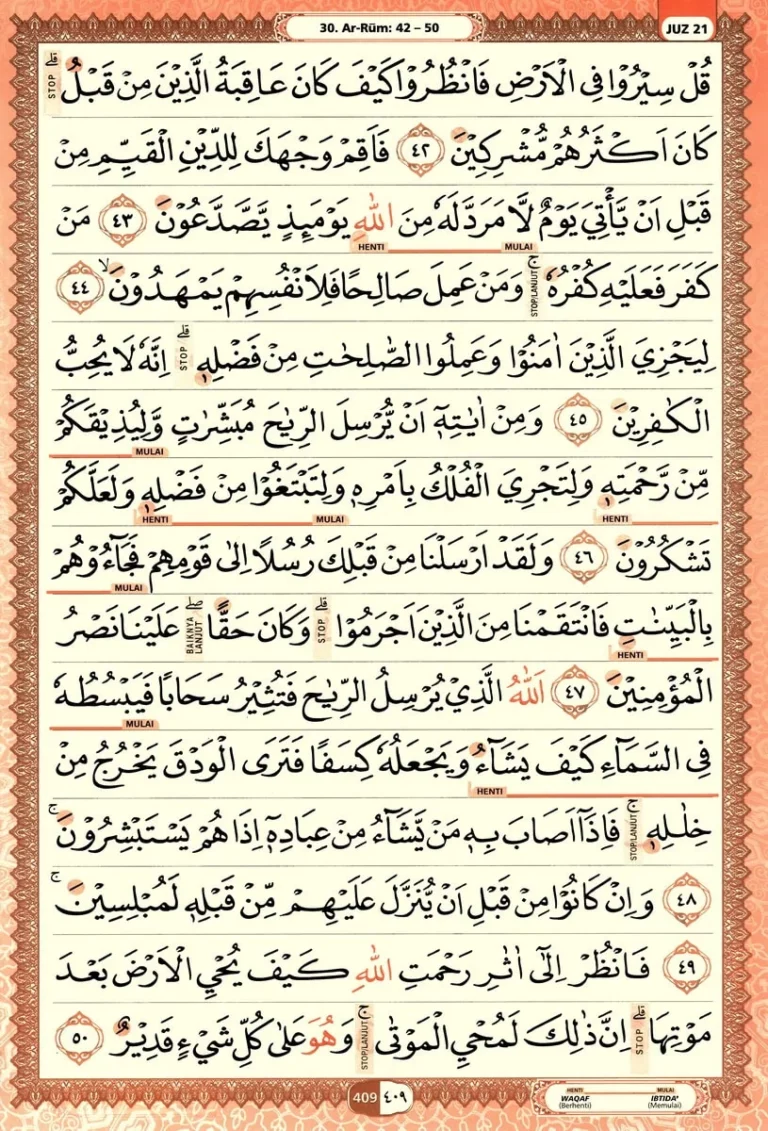 30. Ar-Rūm: 42 – 50
JUZ 21
قُلْ سِيْرُوْا فِى الْاَرْضِ فَانْظُرُوْا كَيْفَ كَانَ عَاقِبَةُ الَّذِيْنَ مِنْ قَبْلُۗ
STOP
كَانَ اَكْثَرُهُمْ مُّشْرِكِيْنَ ٤٢ فَاَقِمْ وَجْهَكَ لِلدِّيْنِ الْقَيِّمِ مِنْ
قَبْلِ اَنْ يَّأْتِيَ يَوْمٌ لَّا مَرَدَّ لَهٗ مِنَ اللّٰهِ يَوْمَىِٕذٍ يَّصَّدَّعُوْنَ ٤٣ مَنْ
MULAI HENTI
كَفَرَ فَعَلَيْهِ كُفْرُهٗۚ وَمَنْ عَمِلَ صَالِحًا فَلِاَنْفُسِهِمْ يَمْهَدُوْنَۙ ٤٤
STOP/LANJUT
لِيَجْزِيَ الَّذِيْنَ اٰمَنُوْا وَعَمِلُوا الصّٰلِحٰتِ مِنْ فَضْلِهٖۗ اِنَّهٗ لَا يُحِبُّ
STOP
الْكٰفِرِيْنَ ٤٥ وَمِنْ اٰيٰتِهٖٓ اَنْ يُّرْسِلَ الرِّيٰحَ مُبَشِّرٰتٍ وَّلِيُذِيْقَكُمْ
MULAI
مِّنْ رَّحْمَتِهٖ وَلِتَجْرِيَ الْفُلْكُ بِاَمْرِهٖ وَلِتَبْتَغُوْا مِنْ فَضْلِهٖ وَلَعَلَّكُمْ
HENTI MULAI HENTI
تَشْكُرُوْنَ ٤٦ وَلَقَدْ اَرْسَلْنَا مِنْ قَبْلِكَ رُسُلًا اِلٰى قَوْمِهِمْ فَجَاۤءُوْهُمْ
MULAI
بِالْبَيِّنٰتِ فَانْتَقَمْنَا مِنَ الَّذِيْنَ اَجْرَمُوْاۗ وَكَانَ حَقًّاۖ عَلَيْنَا نَصْرُ
HENTI STOP BAIKNYA LANJUT
الْمُؤْمِنِيْنَ ٤٧ اَللّٰهُ الَّذِيْ يُرْسِلُ الرِّيٰحَ فَتُثِيْرُ سَحَابًا فَيَبْسُطُهٗ
MULAI
فِى السَّمَاۤءِ كَيْفَ يَشَاۤءُ وَيَجْعَلُهٗ كِسَفًا فَتَرَى الْوَدْقَ يَخْرُجُ مِنْ
HENTI
خِلٰلِهٖۚ فَاِذَآ اَصَابَ بِهٖ مَنْ يَّشَاۤءُ مِنْ عِبَادِهٖٓ اِذَا هُمْ يَسْتَبْشِرُوْنَۚ
STOP/LANJUT
٤٨ وَاِنْ كَانُوْا مِنْ قَبْلِ اَنْ يُّنَزَّلَ عَلَيْهِمْ مِّنْ قَبْلِهٖ لَمُبْلِسِيْنَۚ
٤٩ فَانْظُرْ اِلٰٓى اٰثٰرِ رَحْمَتِ اللّٰهِ كَيْفَ يُحْيِ الْاَرْضَ بَعْدَ
مَوْتِهَاۗ اِنَّ ذٰلِكَ لَمُحْيِ الْمَوْتٰىۚ وَهُوَ عَلٰى كُلِّ شَيْءٍ قَدِيْرٌ ٥٠
STOP STOP/LANJUT
409 ٤٠٩
HENTI MULAI
WAQAF IBTIDA'
(Berhenti) (Memulai)